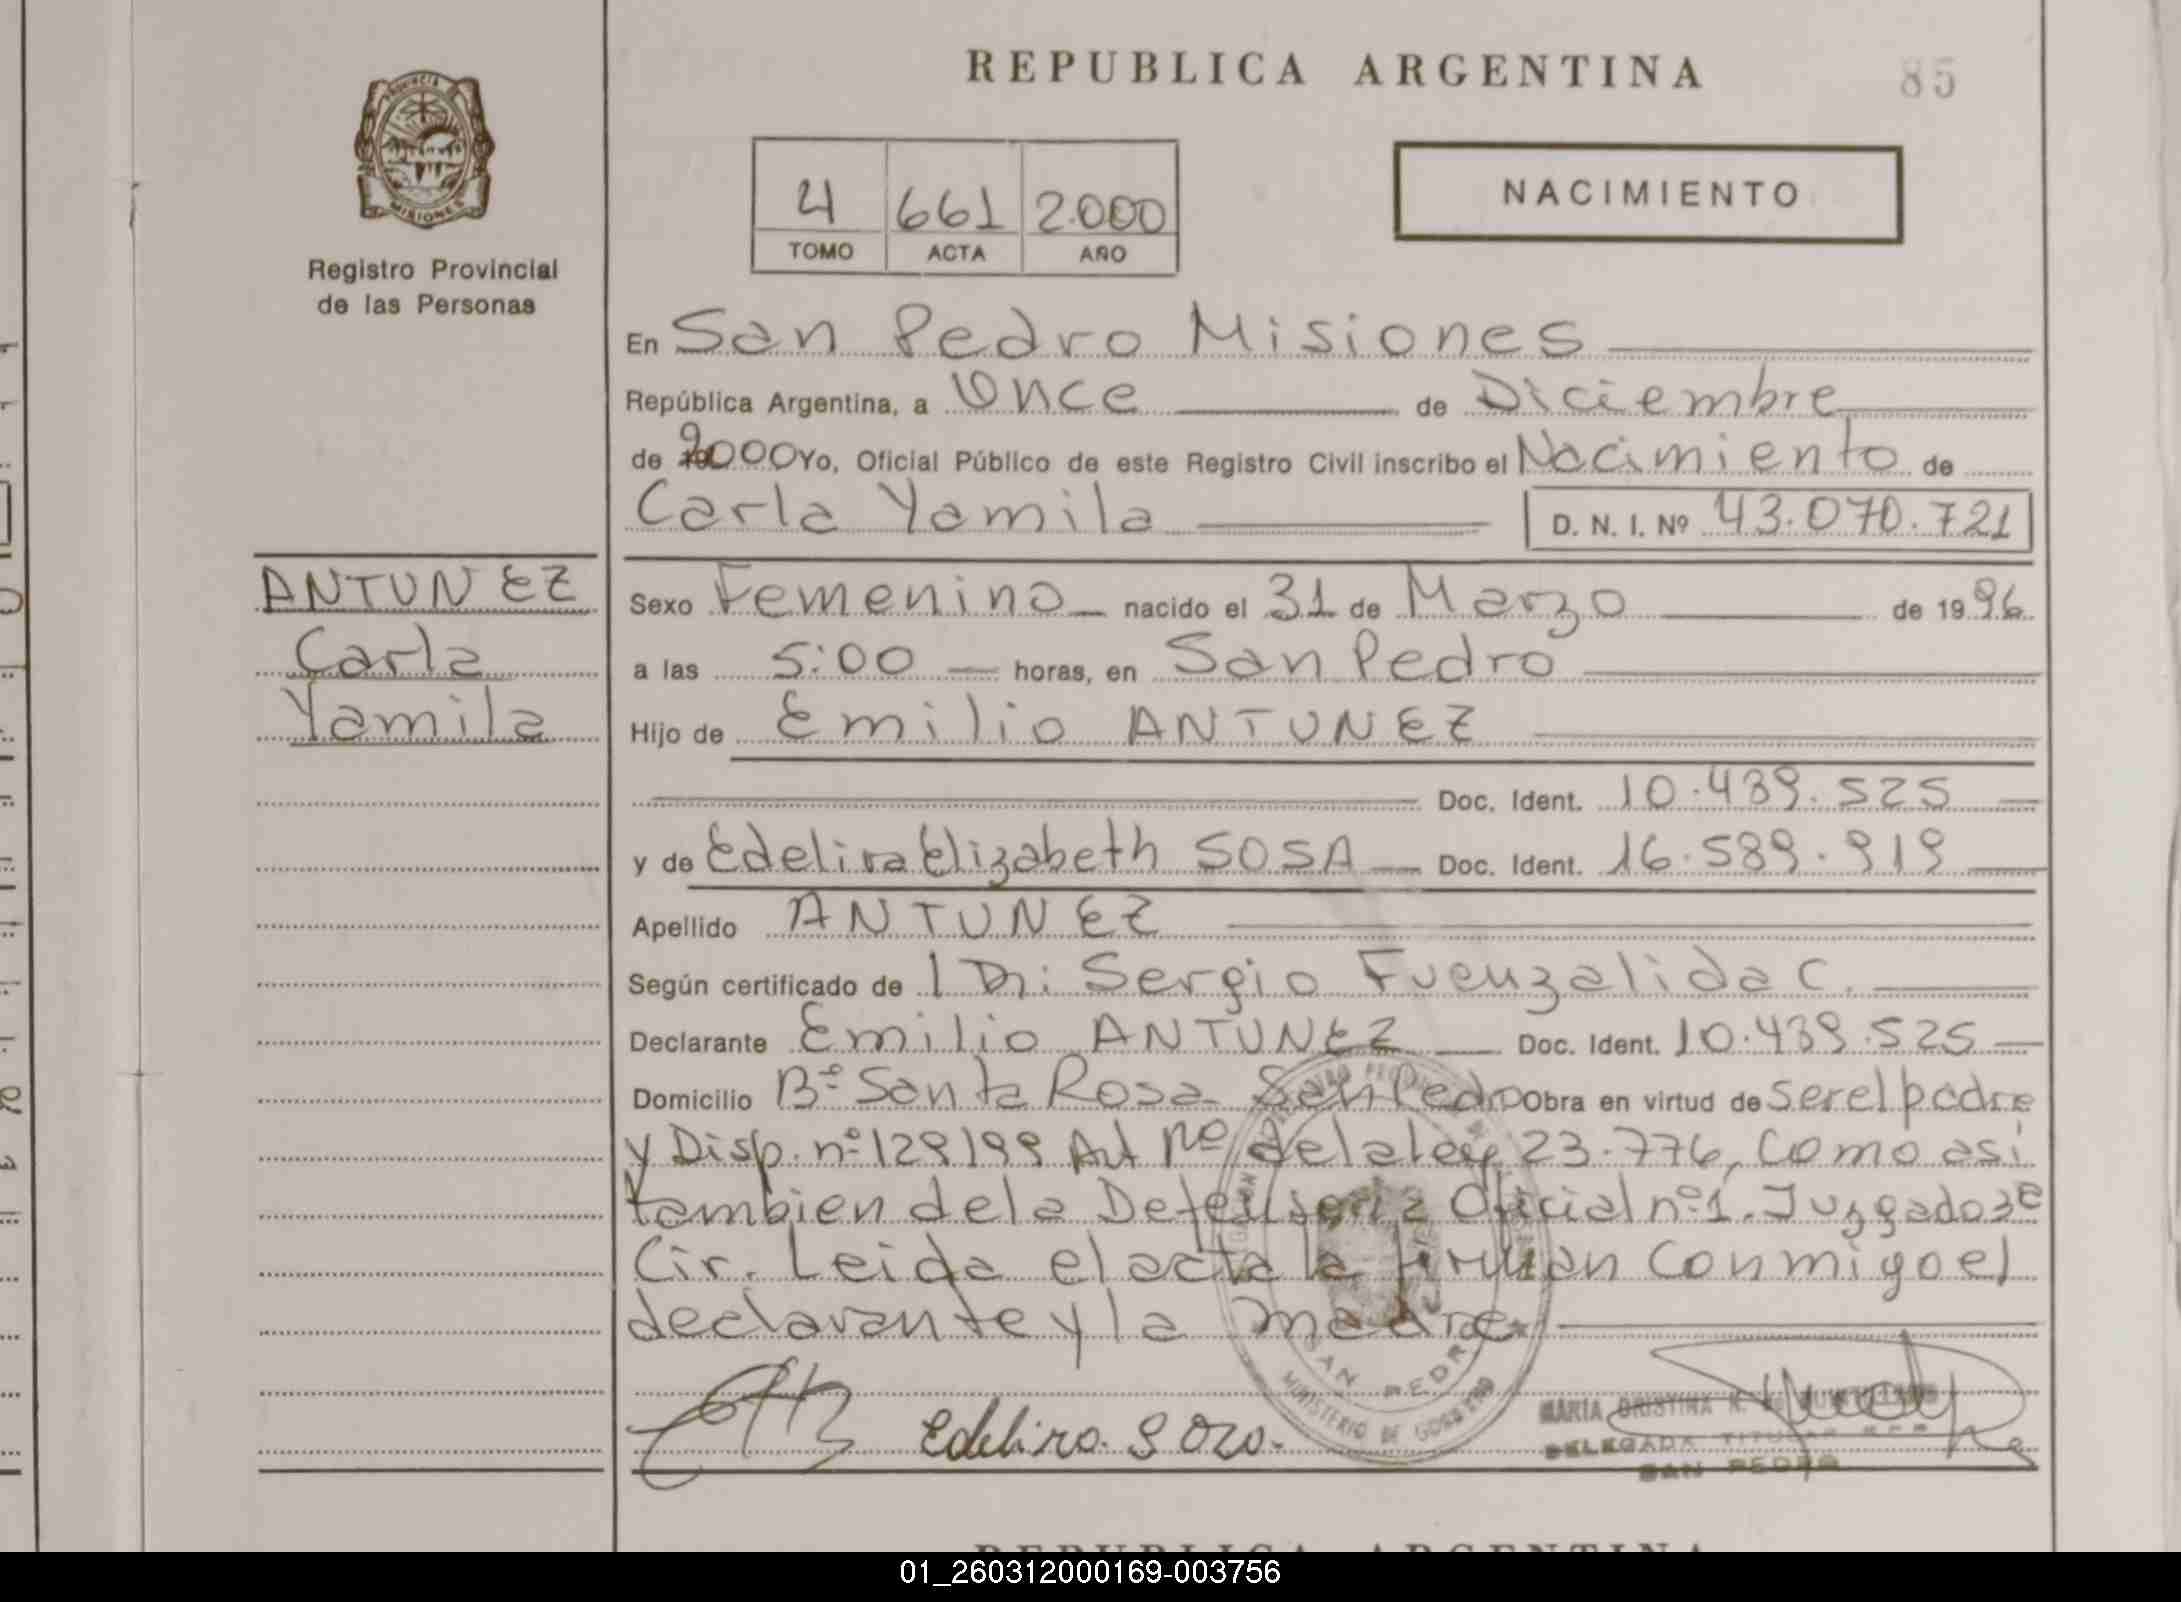 REPUBLICA ARGENTINA
85
PROVINCIA
MISIONES
Registro Provincial
de las Personas
4 661 2.000
TOMO ACTA AÑO
NACIMIENTO
En San Pedro Misiones
República Argentina, a Once de Diciembre
de 2000 Yo, Oficial Público de este Registro Civil inscribo el Nacimiento de
Carla Yamila D. N. I. Nº 43.070.721
ANTUNEZ
Carla
Yamila
Sexo Femenino nacido el 31 de Marzo de 1996
a las 5:00 horas, en San Pedro
Hijo de Emilio ANTUNEZ
Doc. Ident. 10.439.525
y de Edelira Elizabeth SOSA Doc. Ident. 16.589.919
Apellido ANTUNEZ
Según certificado de Dr: Sergio Fuenzalida C.
Declarante Emilio ANTUNEZ Doc. Ident. 10.439.525
Domicilio Bº Santa Rosa San Pedro Obra en virtud de ser el padre
y Disp. nº 129/99 Art de la ley 23.776, Como asi
tambien de la Defensoria Oficial nº 1. Juzgado 3º
Cir. Leida el acta la firman conmigo el
declarante y la madre
SAN PEDRO
MINISTERIO DE GOBIERNO
MARIA CRISTINA N.
DELEGADA TITULAR
SAN PEDRO
REPUBLICA ARGENTINA
01_260312000169-003756